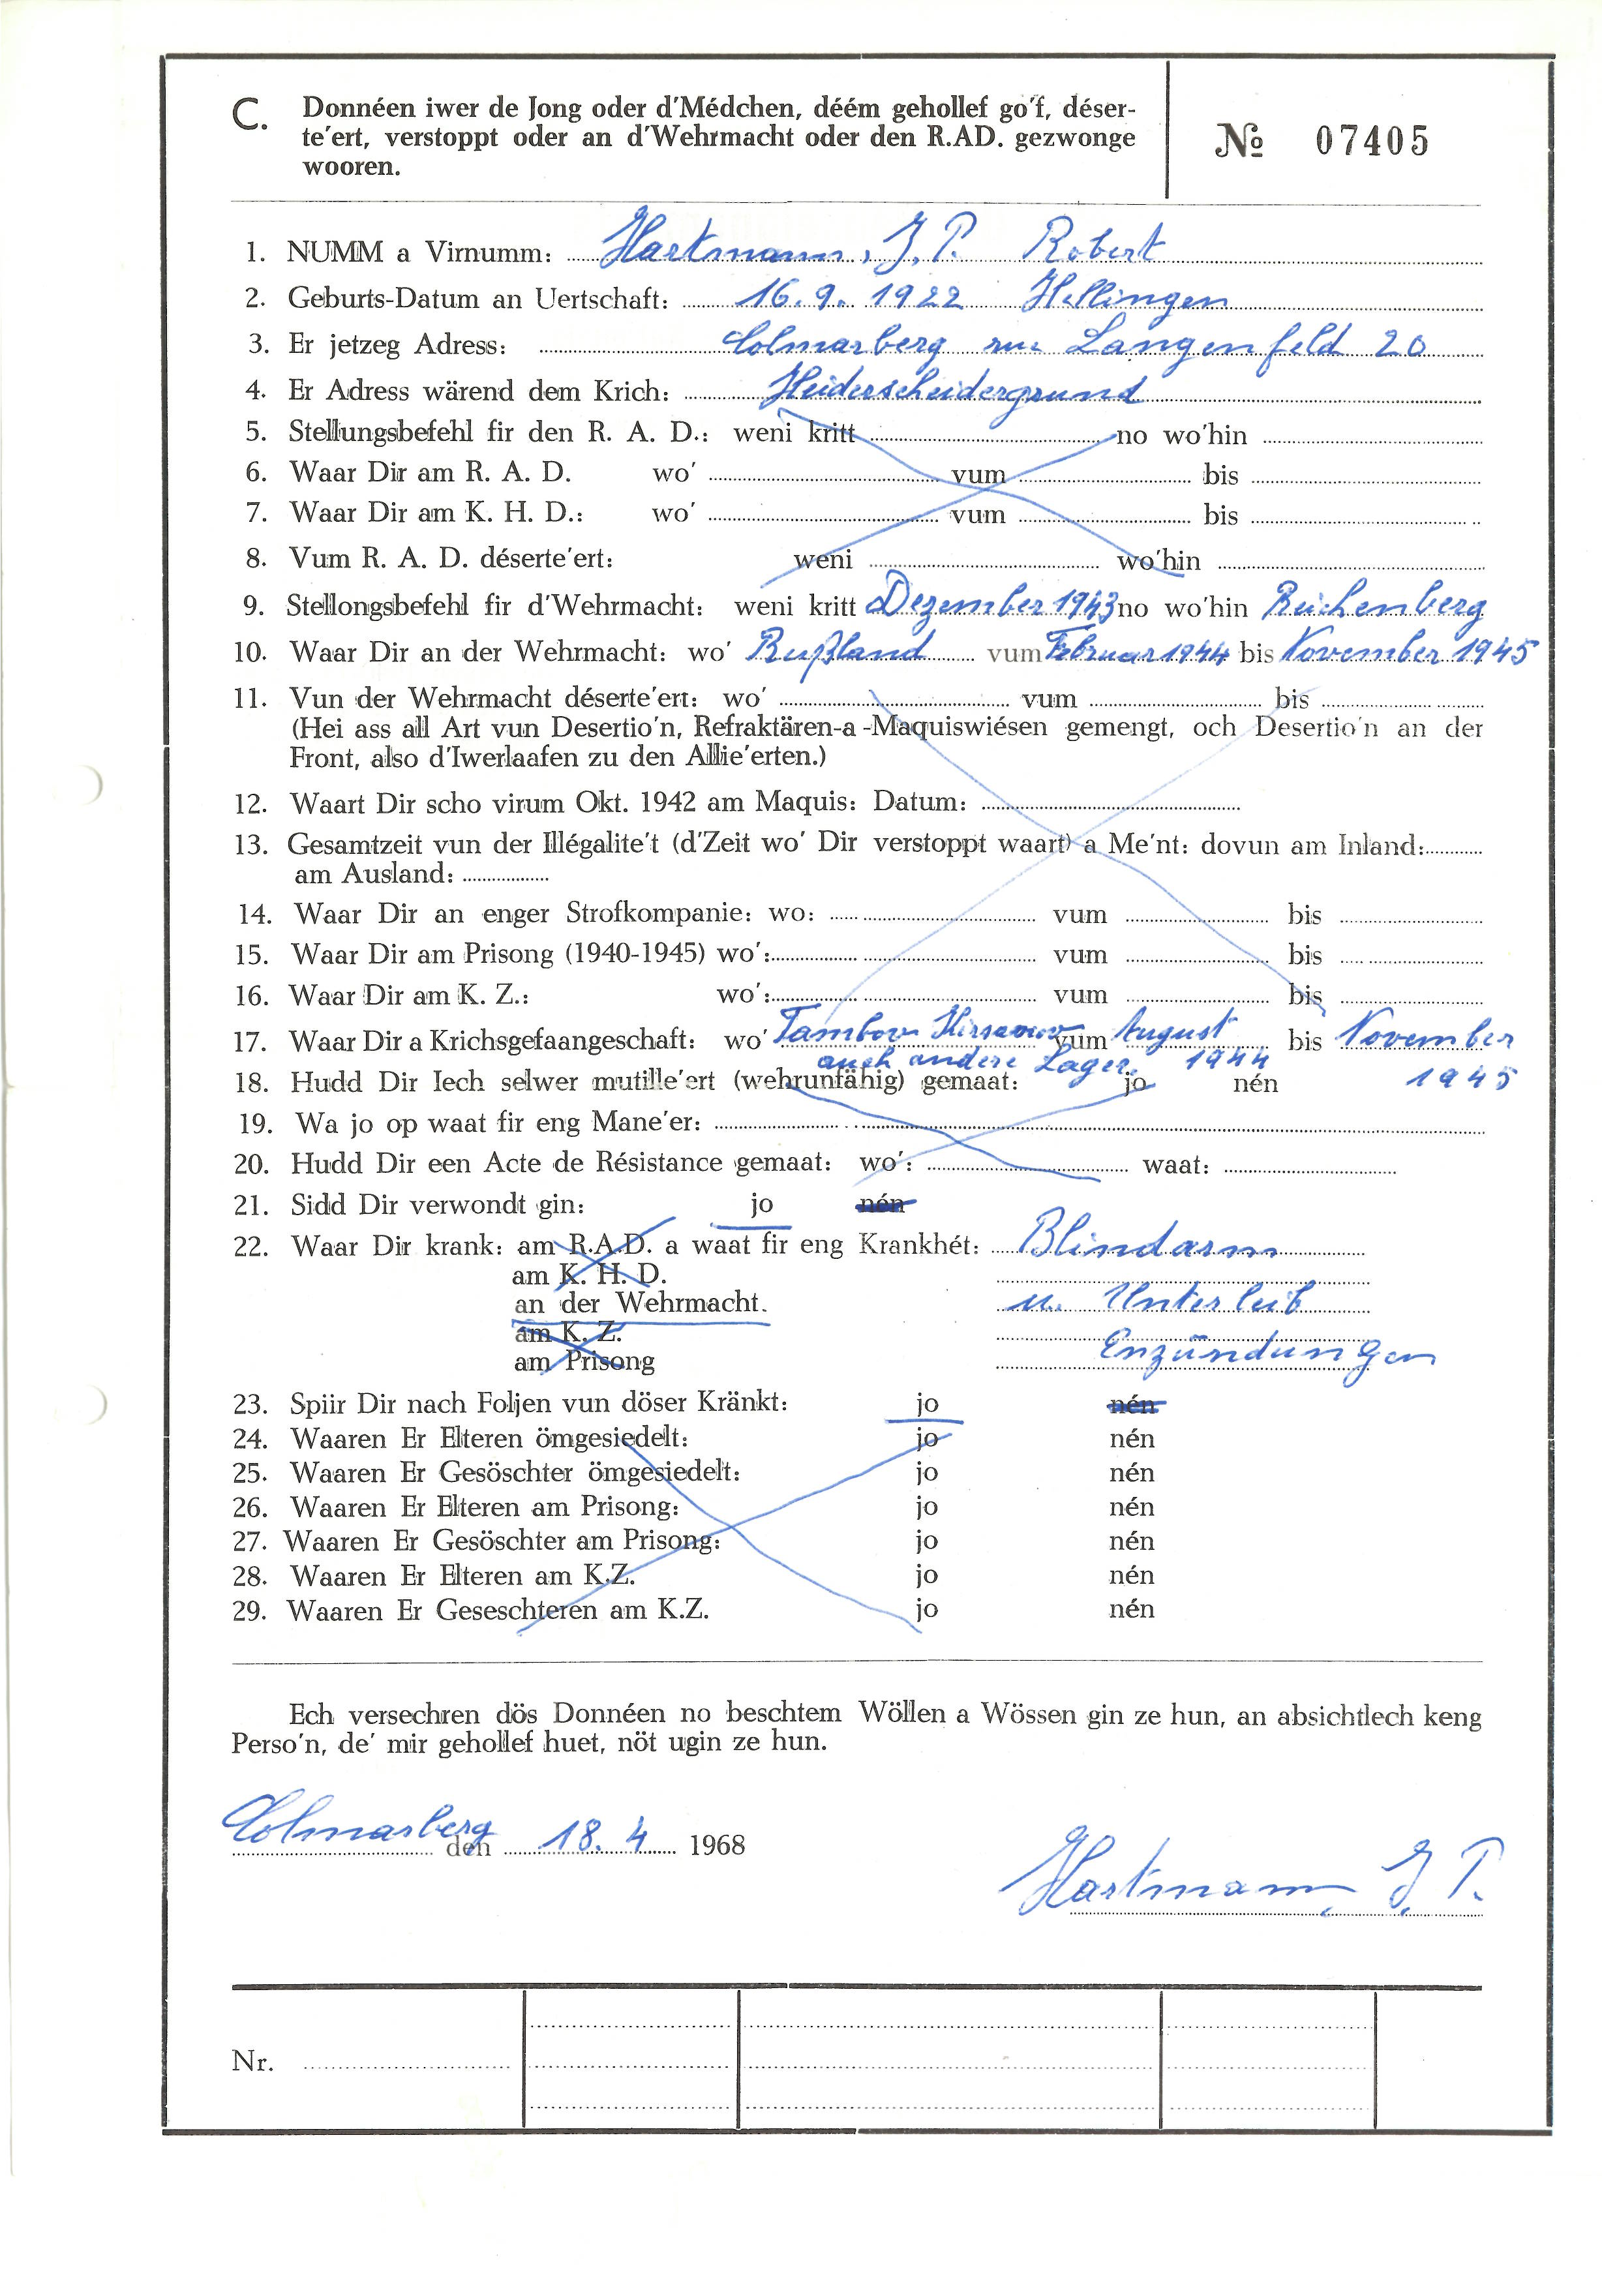 C. Donnéen iwer de Jong oder d'Médchen, déém gehollef go'f, déser-
te'ert, verstoppt oder an d'Wehrmacht oder den R.AD. gezwonge
wooren.
№ 07405
1. NUMM a Virnumm: Hartmann, J. P. Robert
2. Geburts-Datum an Uertschaft: 16. 9. 1922 Hellingen
3. Er jetzeg Adress: Colmarberg rue Langenfeld 20
4. Er Adress wärend dem Krich: Heiderscheidergrund
5. Stellungsbefehl fir den R. A. D.: weni kritt no wo'hin
6. Waar Dir am R. A. D. wo' vum bis
7. Waar Dir am K. H. D.: wo' vum bis
8. Vum R. A. D. déserte'ert: weni wo'hin
9. Stellongsbefehl fir d'Wehrmacht: weni kritt Dezember 1943 no wo'hin Reichenberg
10. Waar Dir an der Wehrmacht: wo' Rußland vum Februar 1944 bis November 1945
11. Vun der Wehrmacht déserte'ert: wo' vum bis
(Hei ass all Art vun Desertio'n, Refraktären-a-Maquiswiésen gemengt, och Desertio'n an der
Front, also d'Iwerlaafen zu den Allie'erten.)
12. Waart Dir scho virum Okt. 1942 am Maquis: Datum:
13. Gesamtzeit vun der Illégalite't (d'Zeit wo' Dir verstoppt waart) a Me'nt: dovun am Inland:
am Ausland:
14. Waar Dir an enger Strofkompanie: wo: vum bis
15. Waar Dir am Prisong (1940-1945) wo': vum bis
16. Waar Dir am K. Z.: wo': vum bis
17. Waar Dir a Krichsgefaangeschaft: wo' Tambow Kirsanow vum August bis November
auch andere Lager. 1944
18. Hudd Dir Iech selwer mutille'ert (wehrunfähig) gemaat: jo nén 1945
19. Wa jo op waat fir eng Mane'er:
20. Hudd Dir een Acte de Résistance gemaat: wo': waat:
21. Sidd Dir verwondt gin: jo nén
22. Waar Dir krank: am R.A.D. a waat fir eng Krankhét: Blindarm
am K. H. D.
an der Wehrmacht. u. Unterleib
am K. Z.
am Prisong Enzündungen
23. Spiir Dir nach Foljen vun döser Kränkt: jo nén
24. Waaren Er Elteren ömgesiedelt: jo nén
25. Waaren Er Gesöschter ömgesiedelt: jo nén
26. Waaren Er Elteren am Prisong: jo nén
27. Waaren Er Gesöschter am Prisong: jo nén
28. Waaren Er Elteren am K.Z. jo nén
29. Waaren Er Geseschteren am K.Z. jo nén
Ech versechren dös Donnéen no beschtem Wöllen a Wössen gin ze hun, an absichtlech keng
Perso'n, de' mir gehollef huet, nöt ugin ze hun.
Colmarberg den 18. 4 1968
Hartmann J. P.
Nr.